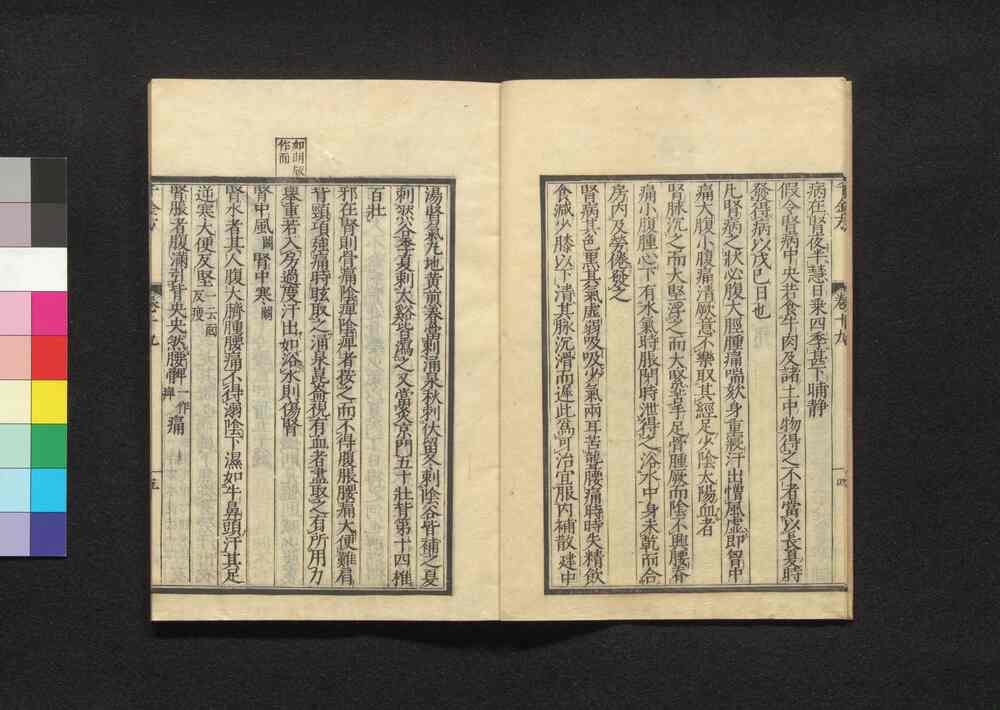 病在腎夜半慧日乘四季甚下晡靜
假令腎病中央若食牛肉及諸土中物得之不者當以長夏時
發得病以戊巳日也
凡腎病之狀必腹大脛腫痛喘欬身重寢汗出憎風虛即胷中
痛大腹小腹痛清厥意不樂取其經足少陰太陽血者
腎脉沉之而大堅浮之而大緊苦手足骨腫厥而陰不興腰脊
痛小腹腫心下有水氣時脹閉時泄得之浴水中身未乾而合
房內及勞倦發之
腎病其色黑其氣虛弱吸吸少氣兩耳苦聾腰痛時時失精飲
食減少膝以下清其脉沉滑而遲此爲可治宜服內補散建中
湯腎氣丸地黃煎春當刺涌泉秋刺伏留冬刺陰谷皆補之夏
刺然谷季夏刺太谿皆瀉之又當灸京門五十壯背第十四椎
百壯
邪在腎則骨痛陰痺陰痺者按之而不得腹脹腰痛大便難肩
背頸項強痛時眩取之涌泉崑崙視有血者盡取之有所用力
舉重若入房過度汗出如浴水則傷腎
腎中風闕腎中寒闕
腎水者其人腹大臍腫腰痛不得溺陰下濕如牛鼻頭汗其足
逆寒大便反堅一云面反瘦
腎脹者腹滿引背央央然腰髀一作痺痛
如明版
作而